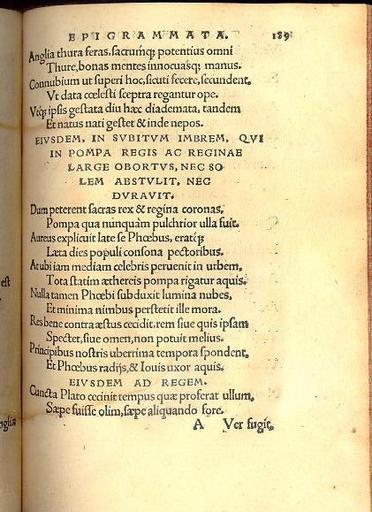 EPIGRAMMATA. 189
Anglia thura feras, sacrumq; potentius omni
Thure, bonas mentes innocuasq; manus.
Connubium ut superi hoc, sicuti fecere, secundent,
Vt data cœlesti sceptra regantur ope.
Vtq; ipsis gestata diu hæc diademata, tandem
Et natus nati gestet & inde nepos.
EIVSDEM, IN SVBITVM IMBREM, QVI
IN POMPA REGIS AC REGINAE
LARGE OBORTVS, NEC SO
LEM ABSTVLIT, NEC
DVRAVIT.
Dum peterent sacras rex & regina coronas,
Pompa qua nunquàm pulchrior ulla fuit.
Aureus explicuit late se Phœbus, eratq;
Læta dies populi consona pectoribus.
At ubi iam mediam celebris peruenit in urbem,
Tota statim æthereis pompa rigatur aquis.
Nulla tamen Phœbi subduxit lumina nubes,
Et minima nimbus perstetit ille mora.
Res bene contra æstus cecidit, rem siue quis ipsam
Spectet, siue omen, non potuit melius.
Principibus nostris uberrima tempora spondent,
Et Phœbus radijs, & Iouis uxor aquis.
EIVSDEM AD REGEM.
Cuncta Plato cecinit tempus quæ proferat ullum,
Sæpe fuisse olim, sæpe aliquando fore.
A Ver fugit,
est